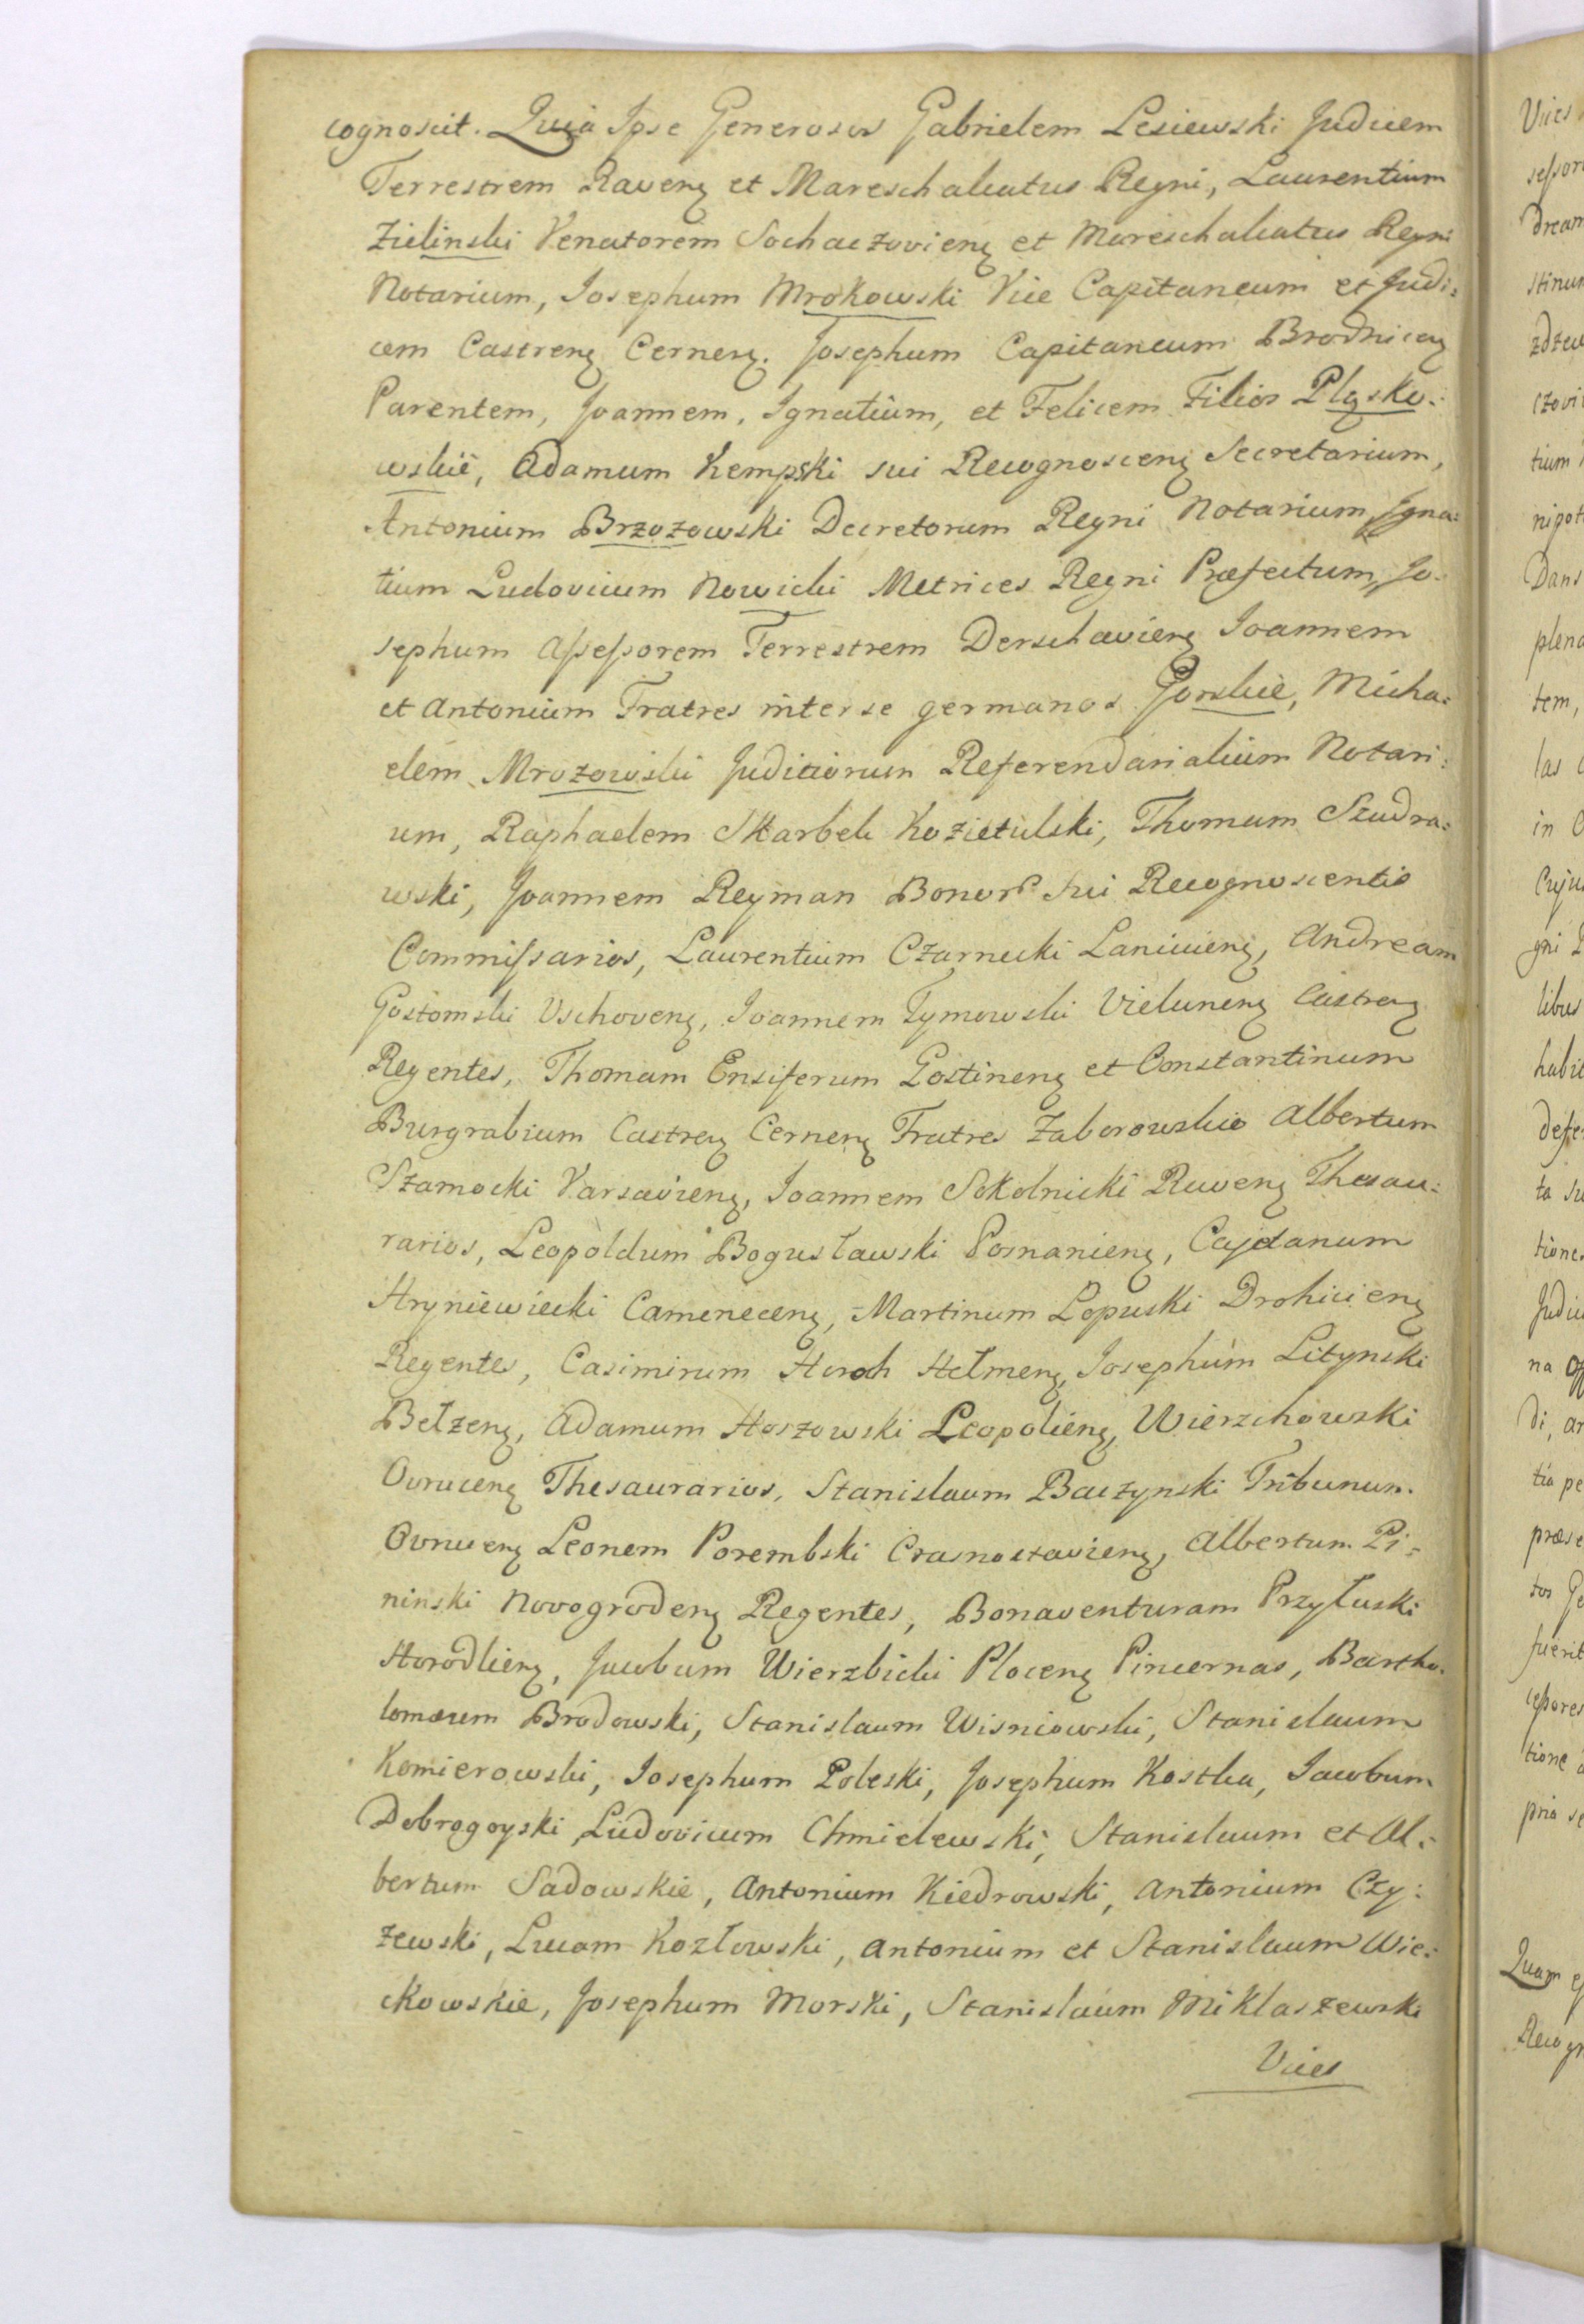 cognoscit. Quia Ipse Generosos Gabrielem Lesiewski Judicem
Terrestrem Ravenȝ et Mareschalcatus Regni, Laurentium
Zielinski Venatorem Sochaczovienȝ et Mareschalcatus Regni
Notarium, Josephum Mrokowski Vice Capitaneum et Judi:
cem Castrenȝ Cernenȝ. Josephum Capitaneum Brodnicenȝ
Parentem, Joannem, Ignatium, et Felicem Filios Pląsko:
wskie, Adamum Kempski sui Recognoscenȝ Secretarium,
Antonium Brzozowski Decretorum Regni Notarium, Igna:
tium Ludovicum Nowicki Metrices Regni Præfectum, Jo:
sephum Assessorem Terrestrem Derschavienȝ Joannem
et Antonium Fratres inter se germanos Gorskie, Micha:
elem Mrozowski Juditiorum Referendarialium Notari:
um, Raphaelem Skarbek Kozietulski, Thomam Szudra:
wski, Joannem Reyman Bonor sui Recognoscentis
Commissarios, Laurentium Czarnecki Lanicienȝ, Andream
Gostomski Vschovenȝ, Joannem Tymowski Vielunenȝ Castrenȝ
Regentes, Thomam Ensiferum Gostinenȝ et Constantinum
Burgrabium Castrenȝ Cernenȝ Fratres Zaborowskie Albertum
Szamocki Varsavienȝ, Joannem Sokolnicki Ravenȝ Thesau:
rarios, Leopoldum Bogusławski Posnanienȝ, Cajetanum
Hryniewiecki Camenecenȝ, Martinum Lopuski Drohicienȝ
Regentes, Casimirum Horoh Hełmenȝ, Josephum Litynski
Bełzenȝ, Adamum Hoszowski Leopolienȝ, Wierzchowski
Ovrucenȝ Thesaurarios, Stanislaum Baczynski Tribunum
Ovrucenȝ Leonem Porembski Crasnostavienȝ, Albertum Pi:
ninski Novogrodenȝ Regentes, Bonaventuram Przyłuski
Horodlienȝ, Jacobum Wierzbicki Plocenȝ Pincernas, Bartho:
lomæum Brodowski, Stanislaum Wisniowski, Stanislaum
Komierowski, Josephum Poleski, Josephum Kostka, Jacobum
Dobrogoyski Ludovicum Chmielewski, Stanislaum et Al:
bertum Sadowskie, Antonium Kiedrowski, Antonium Czy:
zewski, Lucam Kozłowski, Antonium et Stanislaum Wie:
ckowskie, Josephum Morski, Stanislaum Miklaszewski
Vices